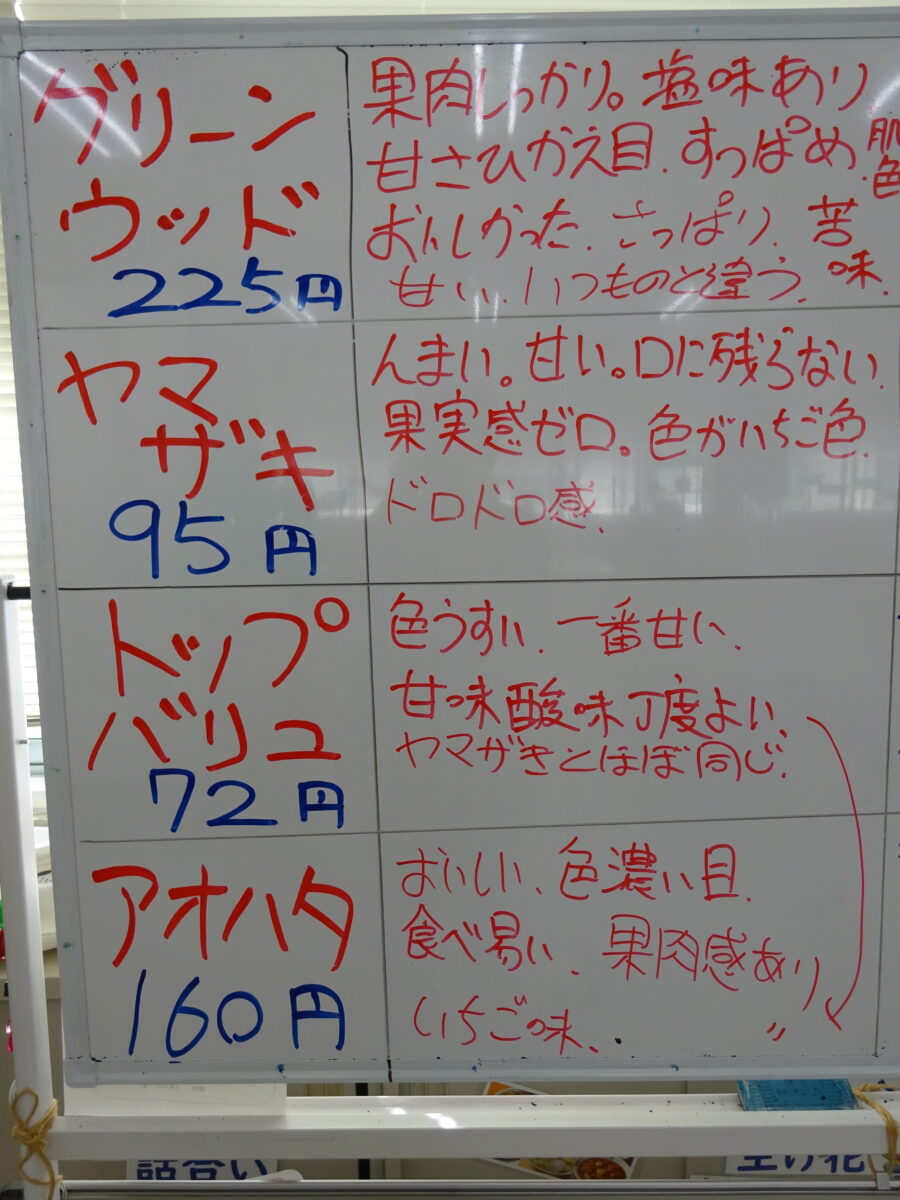 グリーン
ウッド
225円
果肉しっかり。塩味あり
甘さひかえ目、すっぱめ、肌色
おいしかった、さっぱり、苦味、
甘い、いつものと違う、
ヤマ
ザキ
95円
んまい。甘い。口に残らない、
果実感ゼロ。色がいちご色、
ドロドロ感、
トップ
バリュ
72円
色うすい、一番甘い、
甘味酸味丁度よい、
ヤマザきとほぼ同じ、
アオハタ
160円
おいしい、色濃い目、
食べ易い、果肉感あり
いちご味、 〃
話合い